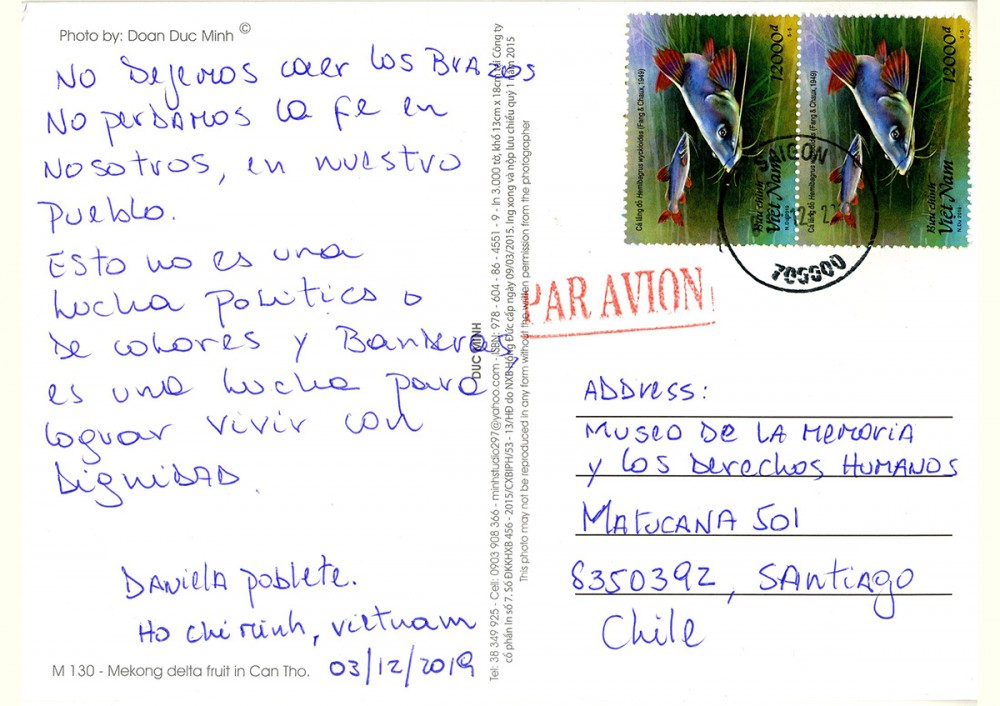 Photo by: Doan Duc Minh ©
No Dejemos caer los Brazos
No perdamos la fe en
Nosotros, en nuestro
pueblo.
Esto no es una
lucha politica o
De colores y Banderas,
es una lucha para
lograr vivir con
Dignidad.
Daniela Poblete.
Ho chi minh, vietnam
03/12/2019
M 130 - Mekong delta fruit in Can Tho.
DUC MINH
Tel: 38 349 925 - Cell: 0903 908 366 - minhstudio297@yahoo.com - ISBN: 978 - 604 - 86 - 4551 - 9 - In 3.000 tờ, khổ 13cm x 18cm tại Công ty
cổ phần In số 7. Số ĐKKHXB 456 - 2015/CXBIPH/53 - 13/HĐ do NXB Hồng Đức cấp ngày 09/03/2015. Ing xong và nộp lưu chiểu quý 1 năm 2015
This photo may not be reproduced in any form without the written permission from the photographer
Cá lăng đỏ Hemibagrus wyckioides (Fang & Chaux, 1949)
12000đ
Bưu chính
Việt Nam
Cá lăng đỏ Hemibagrus wyckioides (Fang & Chaux, 1949)
12000đ
Bưu chính
Việt Nam
SAIGON
700000
PAR AVION
Address:
Museo de la Memoria
y los Derechos Humanos
Matucana 501
8350392, Santiago
Chile